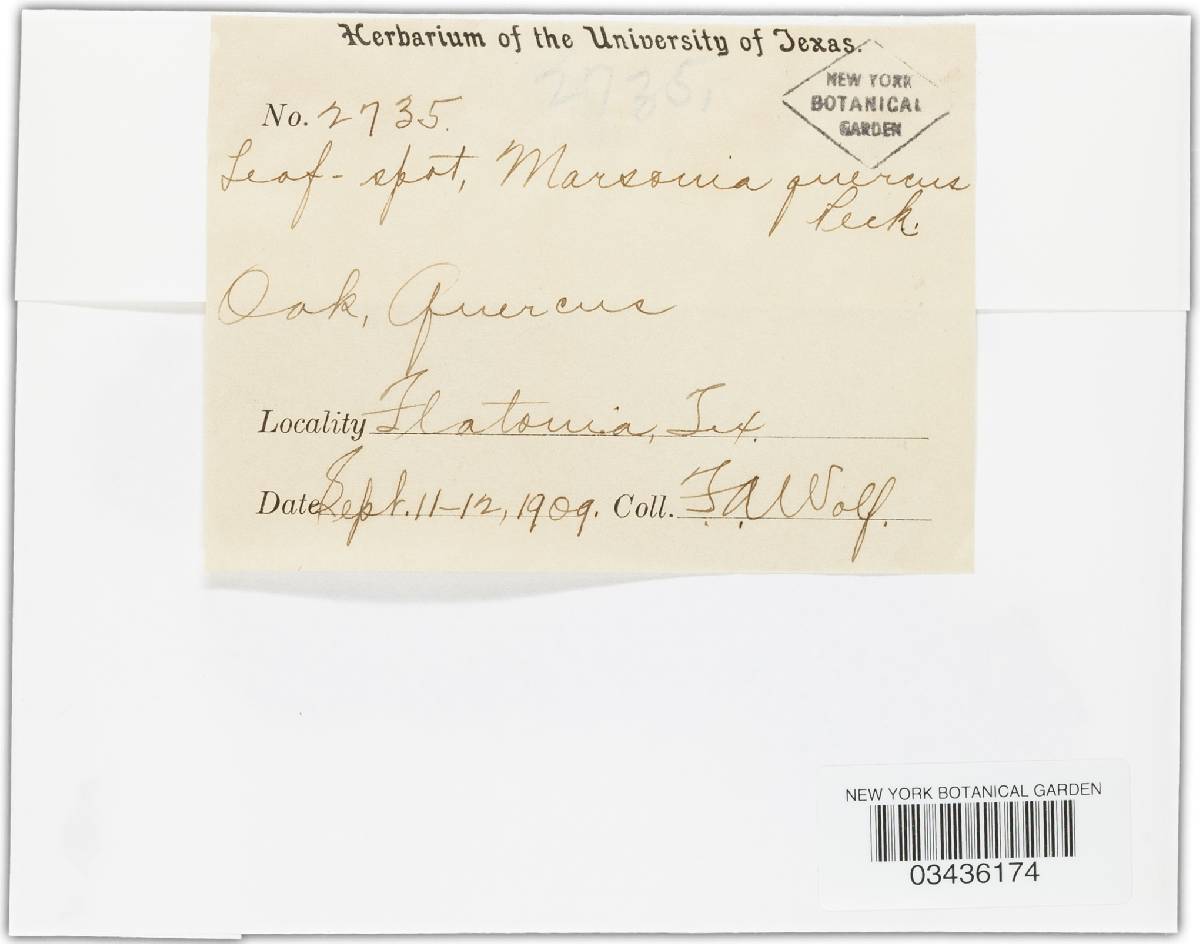 Herbarium of the University of Texas.
2735.
NEW YORK
BOTANICAL
GARDEN
No. 2735.
Leaf-spot, Marsonia quercus
Peck.
Oak, Quercus
Locality Flatonia, Tex.
Date Sept. 11-12, 1909. Coll. F.A. Wolf.
NEW YORK BOTANICAL GARDEN
03436174